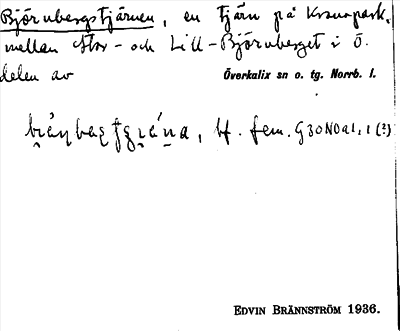 Björnbergstjärnen, en tjärn på Kronopark.
mellan Stor- och Lill-Björnberget i ö.
delen av Överkalix sn o. tg. Norrb. l.
bf. fem. G30NOa1.1(?)
EDVIN BRÄNNSTRÖM 1936.